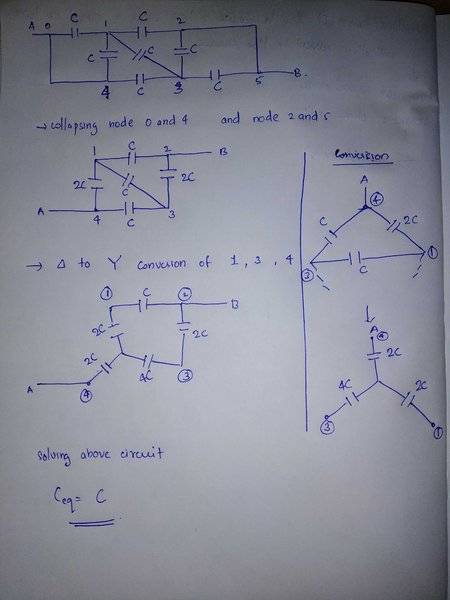 A 0 C 1 C 2
C C C
4 C 3 C 5 B.
→ collapsing node 0 and 4 and node 2 and 5
1 C 2 B
2C C 2C
A 4 C 3
Conversion
A
④
C 2C
③ C ①
→ Δ to Y conversion of 1, 3, 4
① C ② B
2C 2C
2C 4C ③
A ④
A
④
2C
4C 2C
③ ①
solving above circuit
Ceq = C